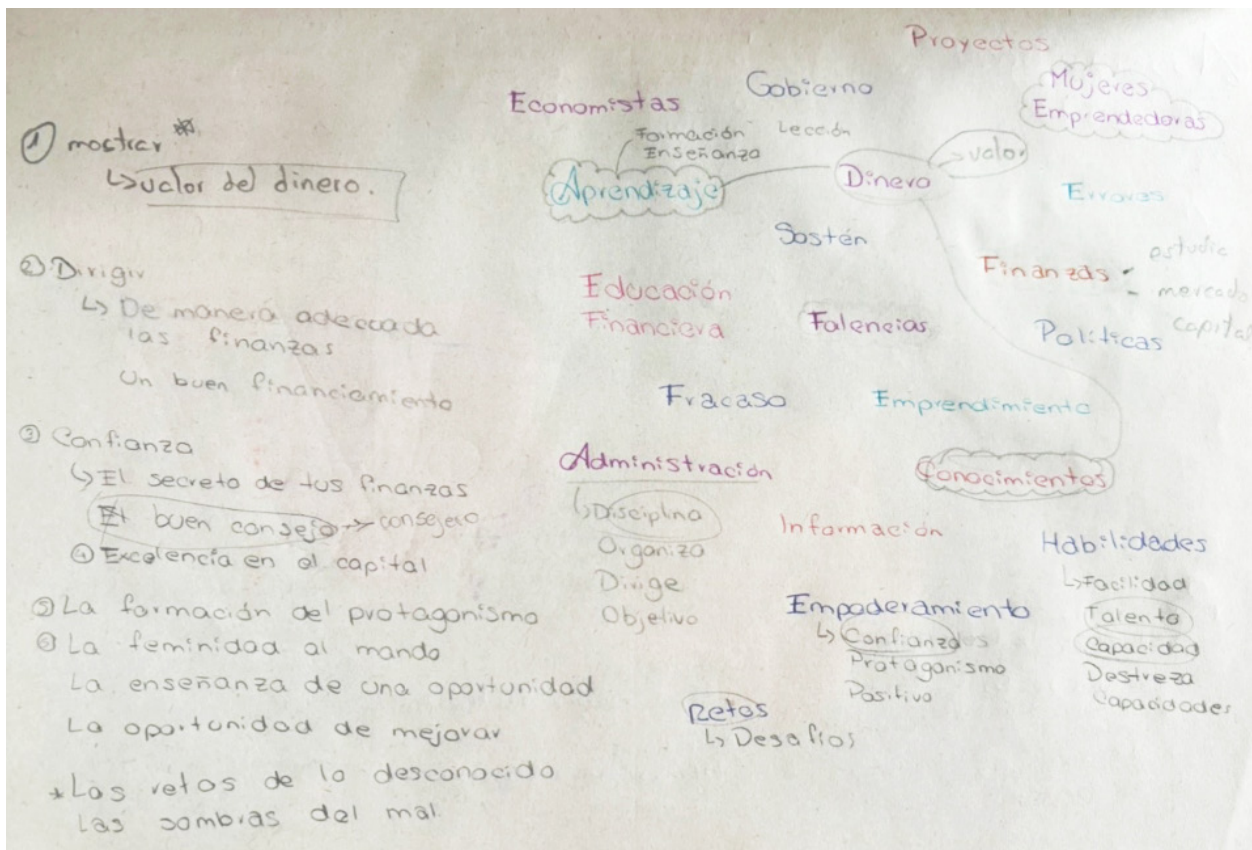 ① mostrar
↳ valor del dinero.
② Dirigir
↳ De manera adecuada
las finanzas
Un buen financiamiento
③ Confianza
↳ El secreto de tus finanzas
El buen consejo → consejero
④ Excelencia en el capital
⑤ La formación del protagonismo
⑥ La feminidad al mando
La enseñanza de una oportunidad
La oportunidad de mejorar
* Los retos de lo desconocido
Las sombras del mal.
Proyectos
Gobierno
Mujeres
Emprendedoras
Economistas
Formación Lección
Enseñanza
Aprendizaje
Dinero
→ valor
Errores
Sostén
Finanzas - estudia
- mercado
capital
Educación
Financiera
Falencias
Políticas
Fracaso
Emprendimiento
Administración
Conocimientos
↳ Disciplina
Organiza
Dirige
Objetivo
Información
Habilidades
↳ Facilidad
Talento
Capacidad
Destreza
Capacidades
Empoderamiento
↳ Confianza
Protagonismo
Positivo
Retos
↳ Desafios